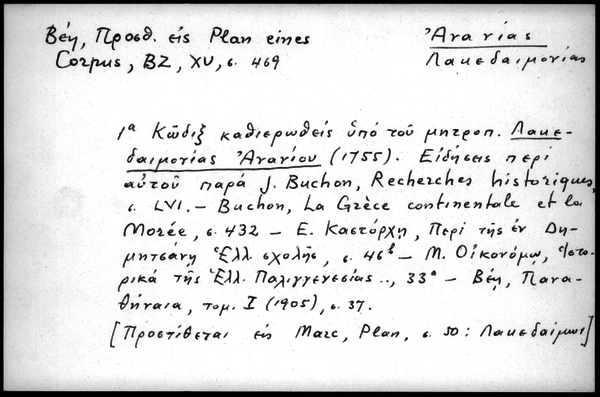 Βέη, Προσθ. εἰς Plan eines
Corpus, BZ, XV, σ. 469
Ἀνανίας
Λακεδαιμονίας
1ᵃ Κῶδιξ καθιερωθεὶς ὑπὸ τοῦ μητροπ. Λακε-
δαιμονίας Ἀνανίου (1755). Εἰδήσεις περὶ
αὐτοῦ παρὰ J. Buchon, Recherches historiques,
σ. LVI. — Buchon, La Grèce continentale et la
Morée, σ. 432 — Ε. Καστόρχη, Περὶ τῆς ἐν Δη-
μητσάνῃ Ἑλλ. σχολῆς, σ. 46ᵇ — Μ. Οἰκονόμου, Ἱστο-
ρικὰ τῆς Ἑλλ. Παλιγγενεσίας .., 33ᵃ — Βέη, Πανα-
θήναια, τομ. I (1905), σ. 37.
[Προστίθεται εἰς Marc, Plan, σ. 50 : Λακεδαίμων]